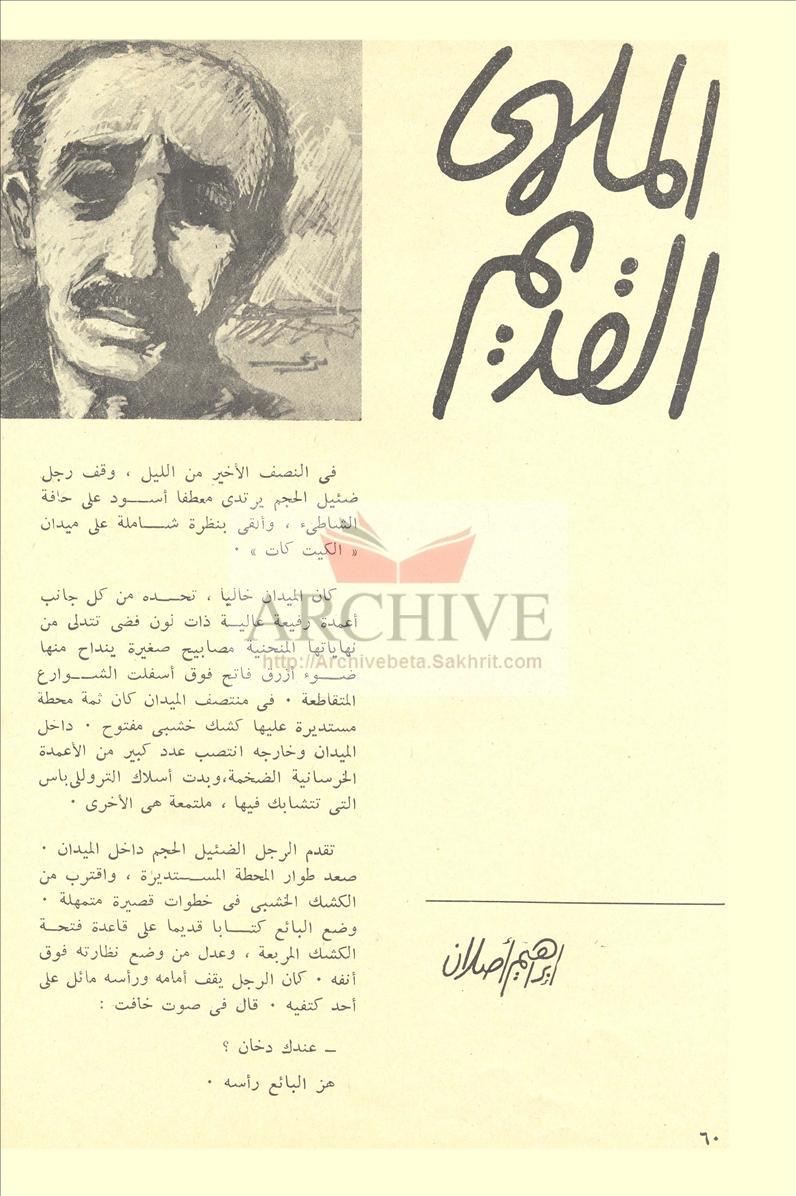 الملهى
القديم
فى النصف الأخير من الليل ، وقف رجل
ضئيل الحجم يرتدى معطفا أسود على حافة
الشاطىء ، وألقى بنظرة شاملة على ميدان
« الكيت كات » ·
كان الميدان خاليا ، تحده من كل جانب
أعمدة رفيعة عالية ذات نون فضى تتدلى من
نهاياتها المنحنية مصابيح صغيرة ينداح منها
ضوء أزرق فاتح فوق أسفلت الشوارع
المتقاطعة · فى منتصف الميدان كان ثمة محطة
مستديرة عليها كشك خشبى مفتوح · داخل
الميدان وخارجه انتصب عدد كبير من الأعمدة
الخرسانية الضخمة،وبدت أسلاك التروللى باس
التى تتشابك فيها ، ملتمعة هى الأخرى ·
تقدم الرجل الضئيل الحجم داخل الميدان ·
صعد طوار المحطة المستديرة ، واقترب من
الكشك الخشبى فى خطوات قصيرة متمهلة ·
وضع البائع كتابا قديما على قاعدة فتحة
الكشك المربعة ، وعدل من وضع نظارته فوق
أنفه · كان الرجل يقف أمامه ورأسه مائل على
أحد كتفيه · قال فى صوت خافت :
ـ عندك دخان ؟
هز البائع رأسه ·
ابراهيم أصلان
٦٠
ARCHIVE
http://Archivebeta.Sakhrit.com